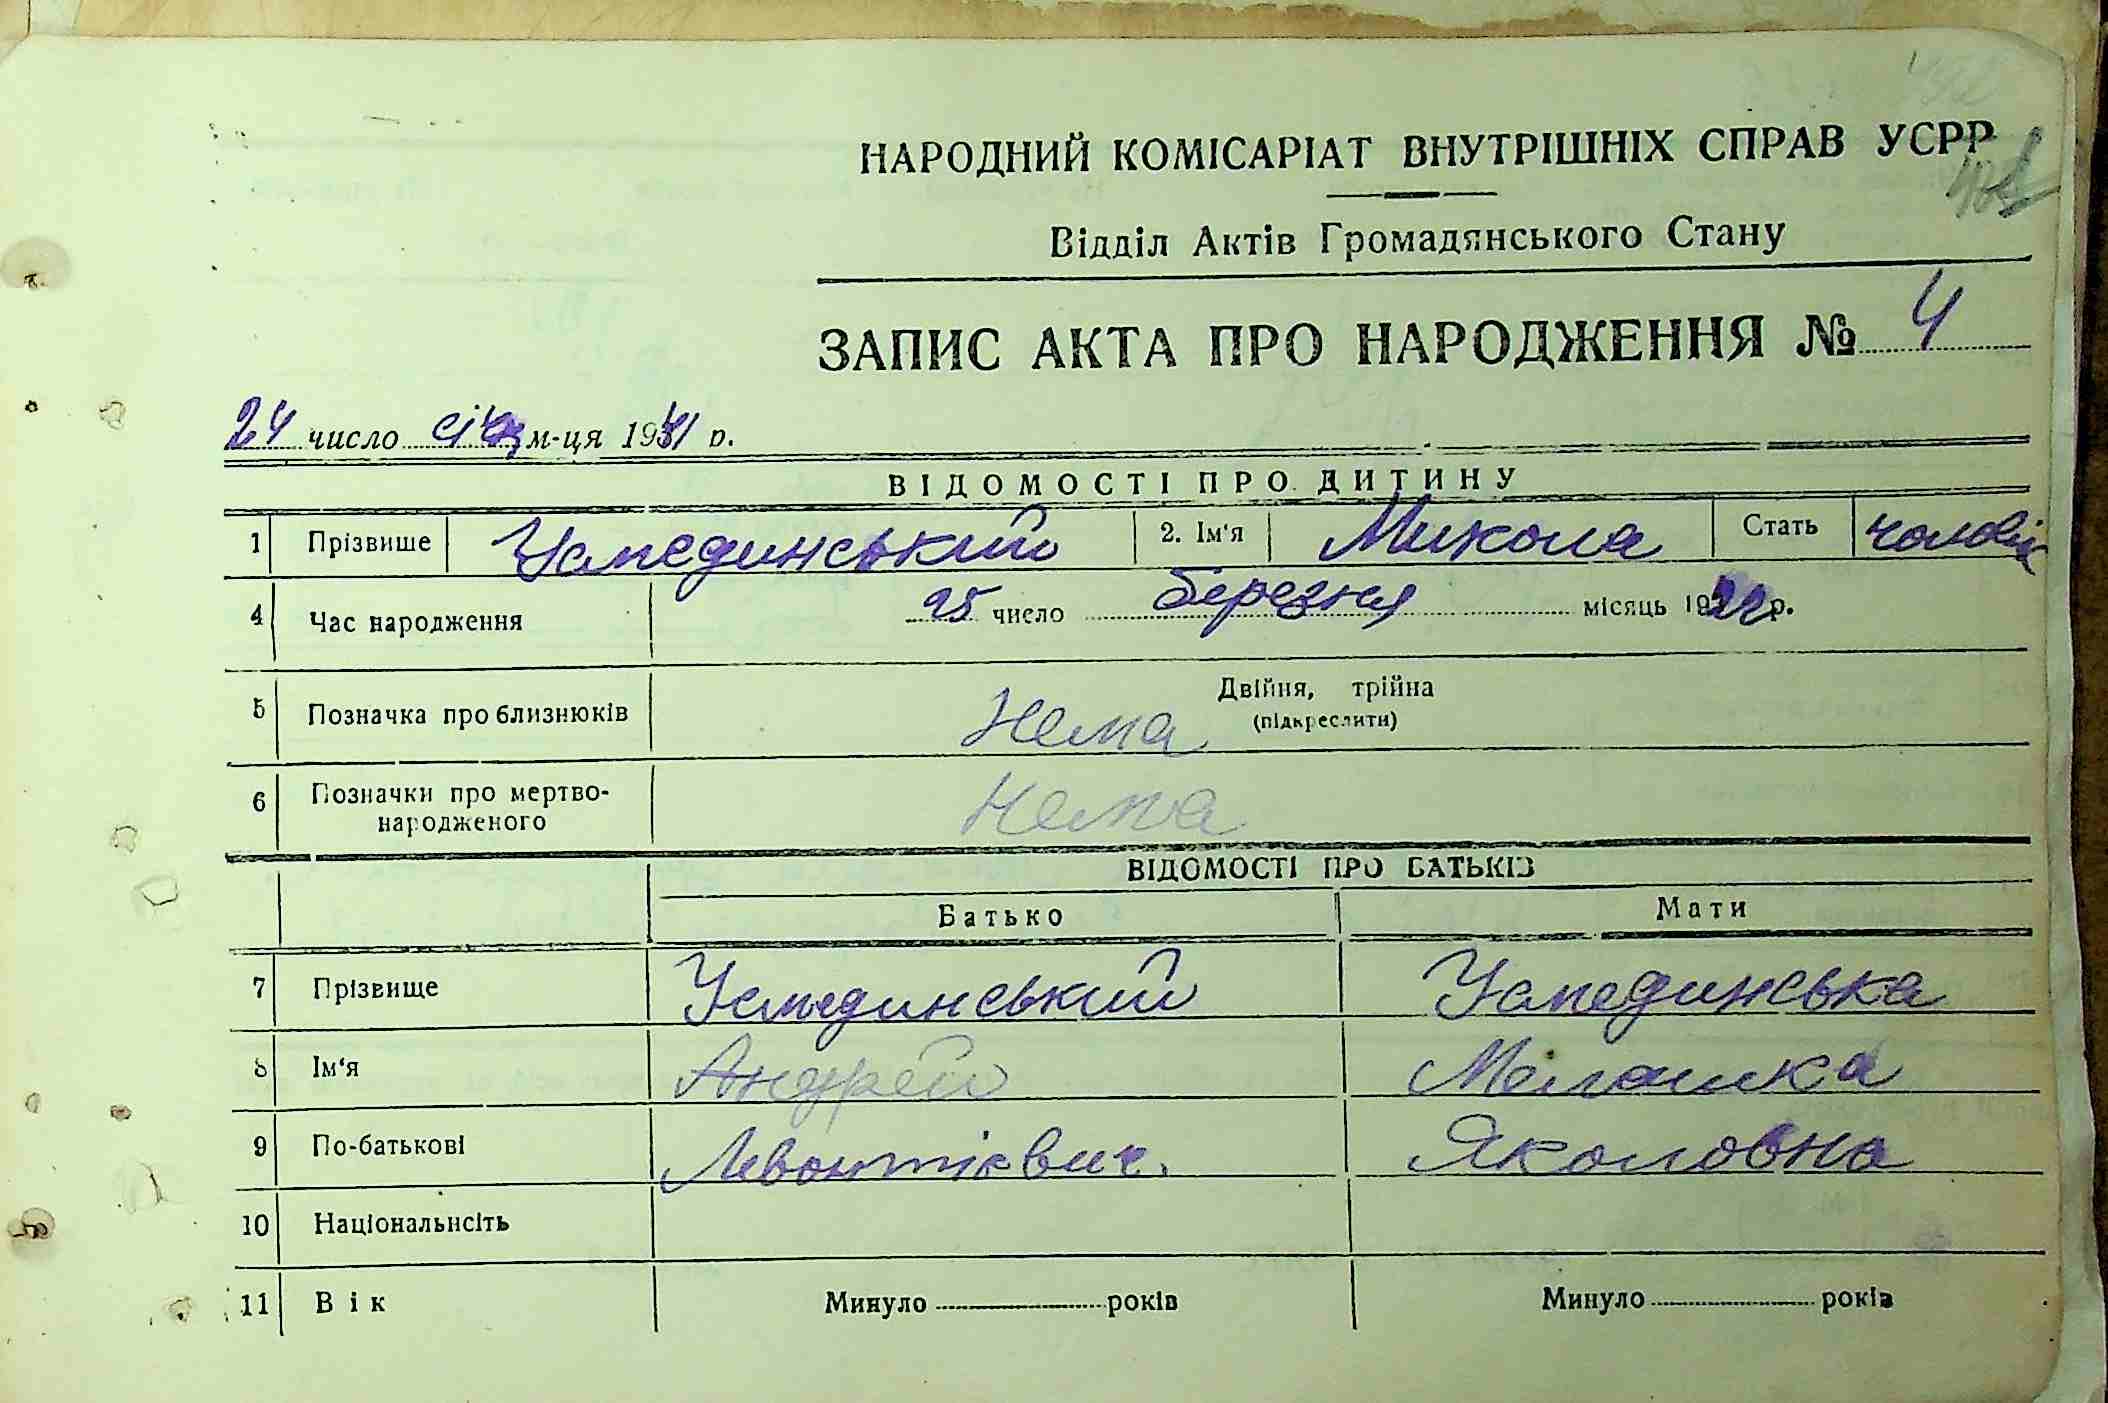 НАРОДНИЙ КОМІСАРІАТ ВНУТРІШНІХ СПРАВ УСРР
Відділ Актів Громадянського Стану
ЗАПИС АКТА ПРО НАРОДЖЕННЯ № 4
24 число січ м-ця 1941 р.
ВІДОМОСТІ ПРО ДИТИНУ
1 Прізвише Устединський 2. Ім'я Микола Стать чоловік
4 Час народження 25 число березня місяць 1922 р.
5 Позначка про близнюків Нема Двійня, трійна
(підкреслити)
6 Позначки про мертво-
народженого Нема
ВІДОМОСТІ ПРО БАТЬКІВ
Батько Мати
7 Прізвище Устединський Устединська
8 Ім'я Андрей Меланка
9 По-батькові Левонтієвич. Яколовна
10 Національнсіть
11 Вік Минуло років Минуло років